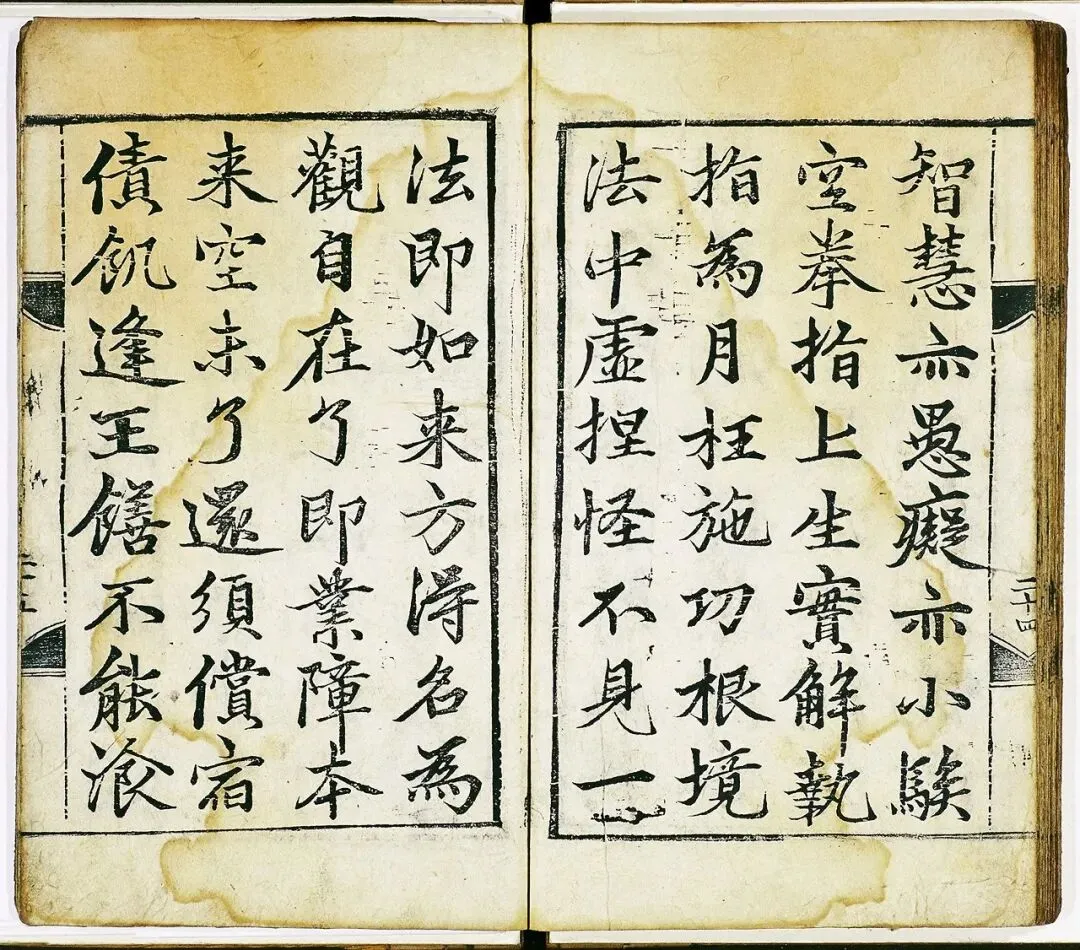 智慧亦愚癡亦小騃
空拳指上生實解執
指為月枉施功根境
法中虛捏怪不見一
法即如来方得名為
觀自在了即業障本
来空未了還須償宿
債飢逢王饍不能湌
二十四